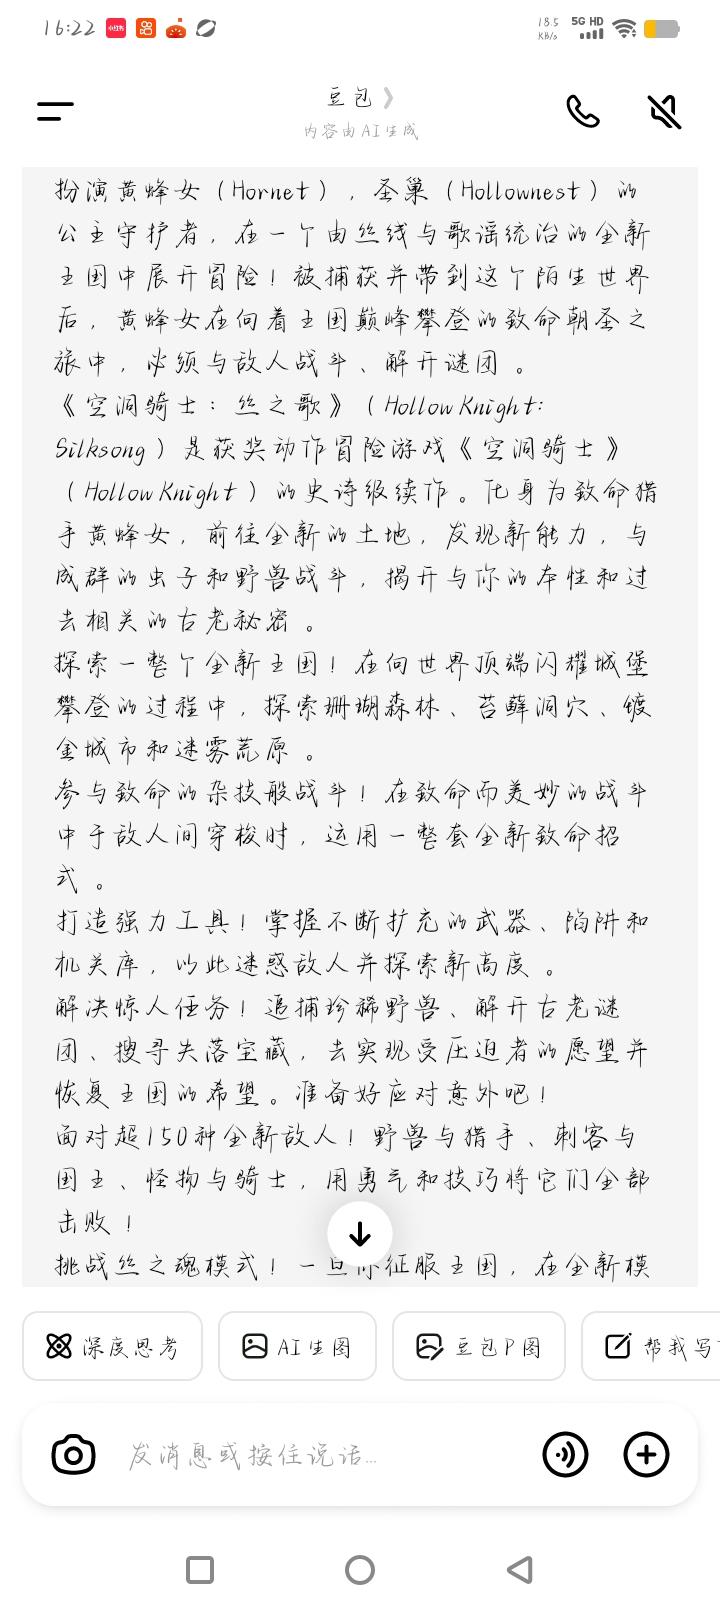 16:22
小红书
18.5 KB/s
5G HD
豆包 》
内容由AI生成
扮演黄蜂女（Hornet），圣巢（Hollownest）的
公主守护者，在一个由丝线与歌谣统治的全新
王国中展开冒险！被捕获并带到这个陌生世界
后，黄蜂女在向着王国巅峰攀登的致命朝圣之
旅中，必须与敌人战斗、解开谜团 。
《空洞骑士：丝之歌》（Hollow Knight:
Silksong）是获奖动作冒险游戏《空洞骑士》
（Hollow Knight）的史诗级续作。化身为致命猎
手黄蜂女，前往全新的土地，发现新能力，与
成群的虫子和野兽战斗，揭开与你的本性和过
去相关的古老秘密 。
探索一整个全新王国！在向世界顶端闪耀城堡
攀登的过程中，探索珊瑚森林、苔藓洞穴、镀
金城市和迷雾荒原 。
参与致命的杂技般战斗！在致命而美妙的战斗
中于敌人间穿梭时，运用一整套全新致命招
式 。
打造强力工具！掌握不断扩充的武器、陷阱和
机关库，以此迷惑敌人并探索新高度 。
解决惊人任务！追捕珍稀野兽、解开古老谜
团、搜寻失落宝藏，去实现受压迫者的愿望并
恢复王国的希望。准备好应对意外吧！
面对超150种全新敌人！野兽与猎手、刺客与
国王、怪物与骑士，用勇气和技巧将它们全部
击败！
挑战丝之魂模式！一旦你征服王国，在全新模
深度思考
AI生图
豆包P图
帮我写
发消息或按住说话...